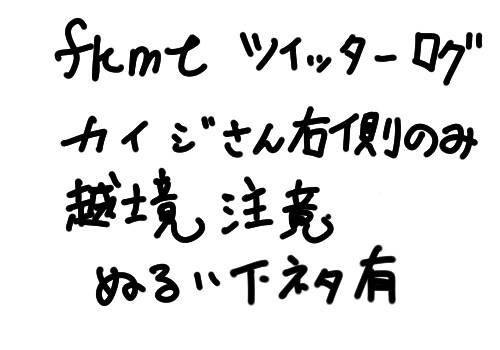 fkmt ツイッターログ
カイジさん右側のみ
越境 注意
ぬるい下ネタ有